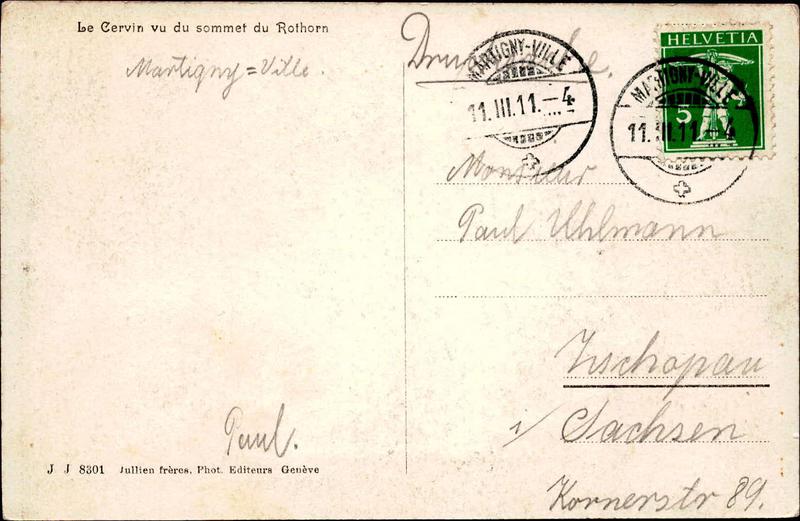 Le Cervin vu du sommet du Rothorn
Martigny=Ville.
Drucksache.
MARTIGNY-VILLE
11.III.11.-4
HELVETIA
5
MARTIGNY-VILLE
11.III.11.-4
Monsieur
Paul Uhlmann
Zschopau
i/ Sachsen
Kornerstr 89.
Paul.
J J 8301 Jullien frères, Phot. Editeurs Genève